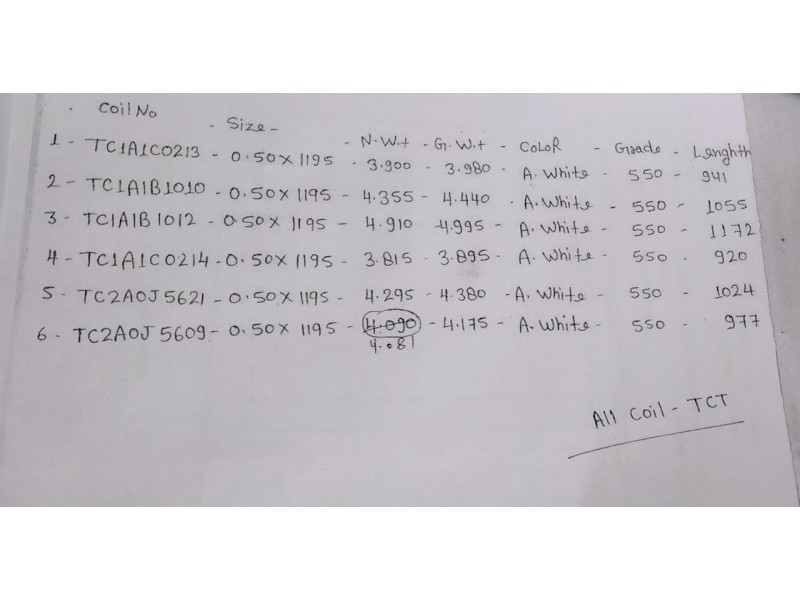 Coil No - Size - - N.W.t - G.W.t - COLOR - Grade - Lenghth
1 - TC1A1C0213 - 0.50 X 1195 - 3.900 - 3.980 - A. White - 550 - 941
2 - TC1A1B1010 - 0.50 X 1195 - 4.355 - 4.440 - A. White - 550 - 1055
3 - TC1A1B1012 - 0.50 X 1195 - 4.910 - 4.995 - A. White - 550 - 1172
4 - TC1A1C0214 - 0.50 X 1195 - 3.815 - 3.895 - A. White - 550 - 920
5 - TC2A0J5621 - 0.50 X 1195 - 4.295 - 4.380 - A. White - 550 - 1024
6 - TC2A0J5609 - 0.50 X 1195 - 4.090 - 4.175 - A. White - 550 - 977
4.081
All Coil - TCT